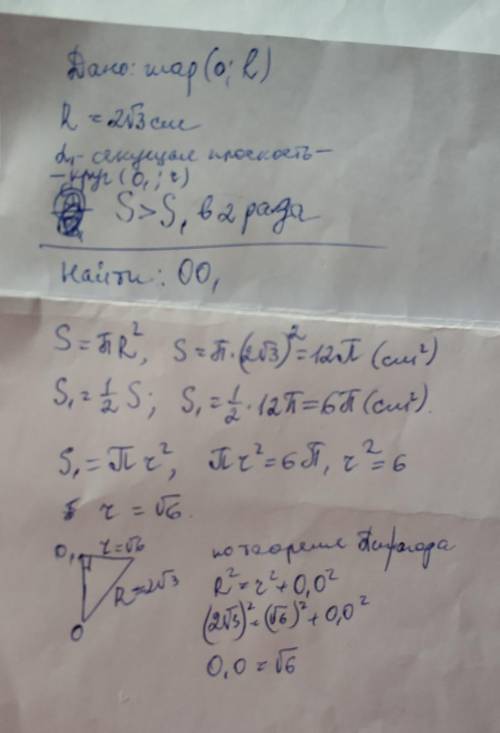 Дано: шар (O; R)
R = 2√3 см
α₁ - секущая плоскость –
– круг (O₁; r)
S > S₁ в 2 раза
Найти: OO₁
S = πR², S = π·(2√3)² = 12π (см²)
S₁ = 1/2 S; S₁ = 1/2 · 12π = 6π (см²).
S₁ = πr², πr² = 6π, r² = 6
r = √6.
O₁ r = √6
R = 2√3
O
по теореме Пифагора
R² = r² + O₁O²
(2√3)² = (√6)² + O₁O²
O₁O = √6